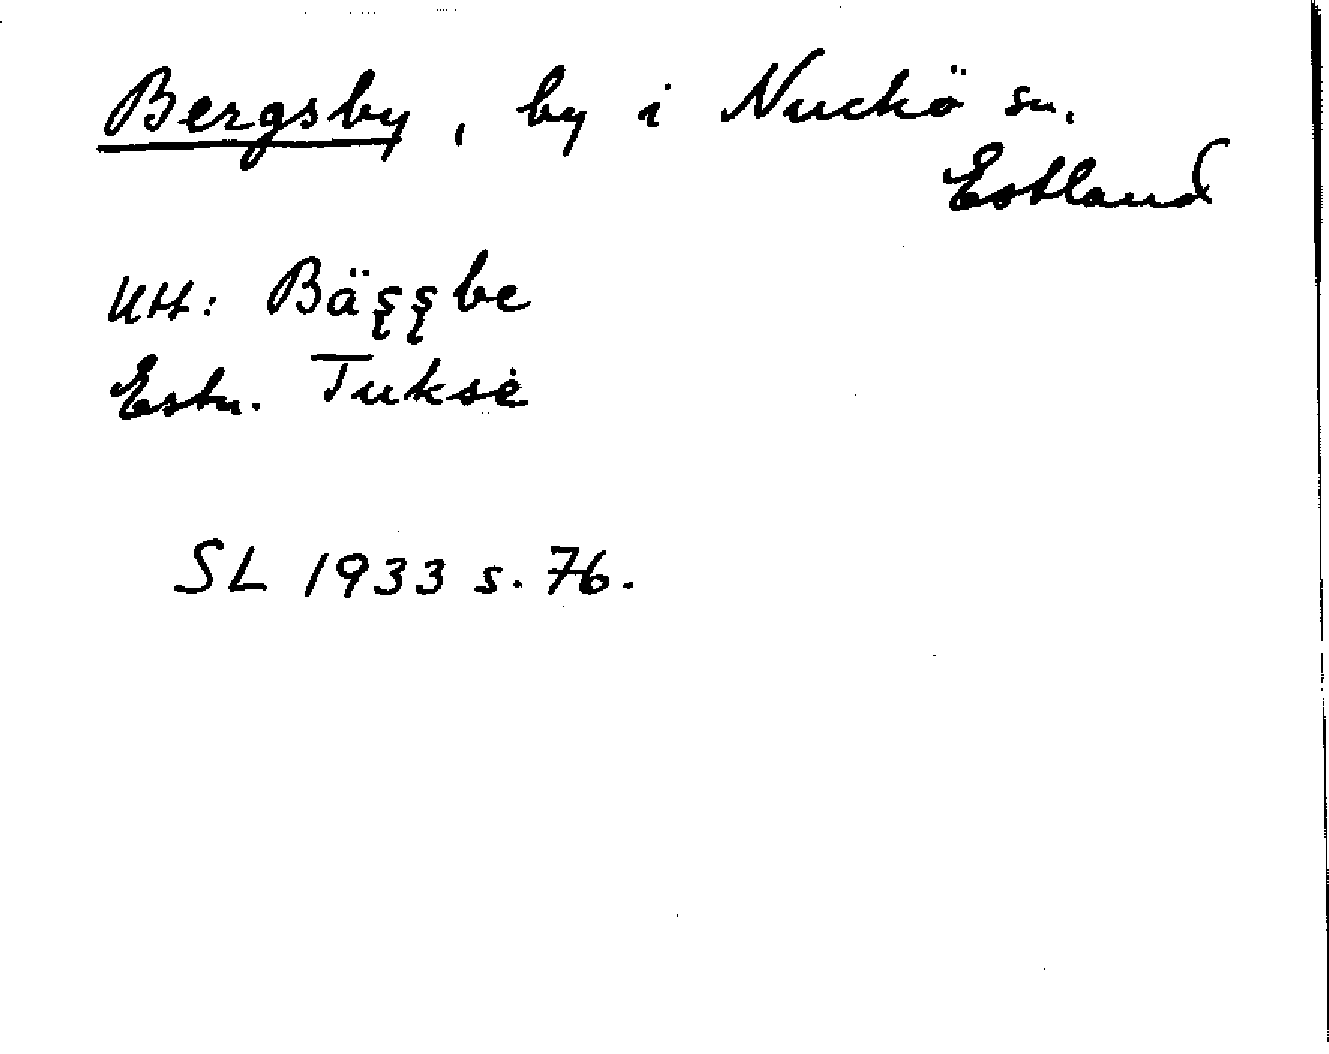 Bergsby, by i Nuckö sn.
Estland
UH: Bäȿȿbe
Estn. Tukse
SL 1933 s. 76.